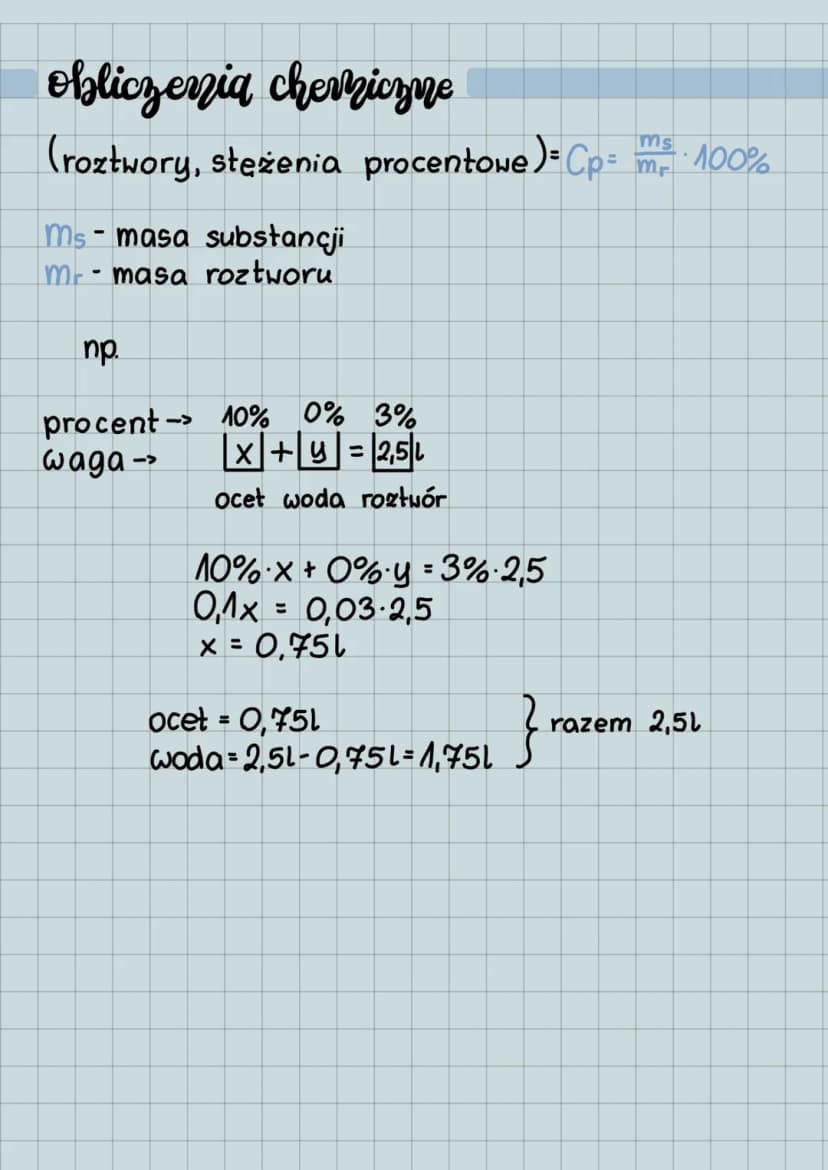 Obliczenia chemiczne
(roztwory, stężenia procentowe)= Cp= ms/mr · 100%
ms - masa substancji
mr - masa roztworu
np.
procent -> 10% 0% 3%
waga -> |x| + |y| = |2,5|l
ocet woda roztwór
10%·x + 0%·y = 3%·2,5
0,1x = 0,03·2,5
x = 0,75l
ocet = 0,75l
woda = 2,5l - 0,75l = 1,75l } razem 2,5l